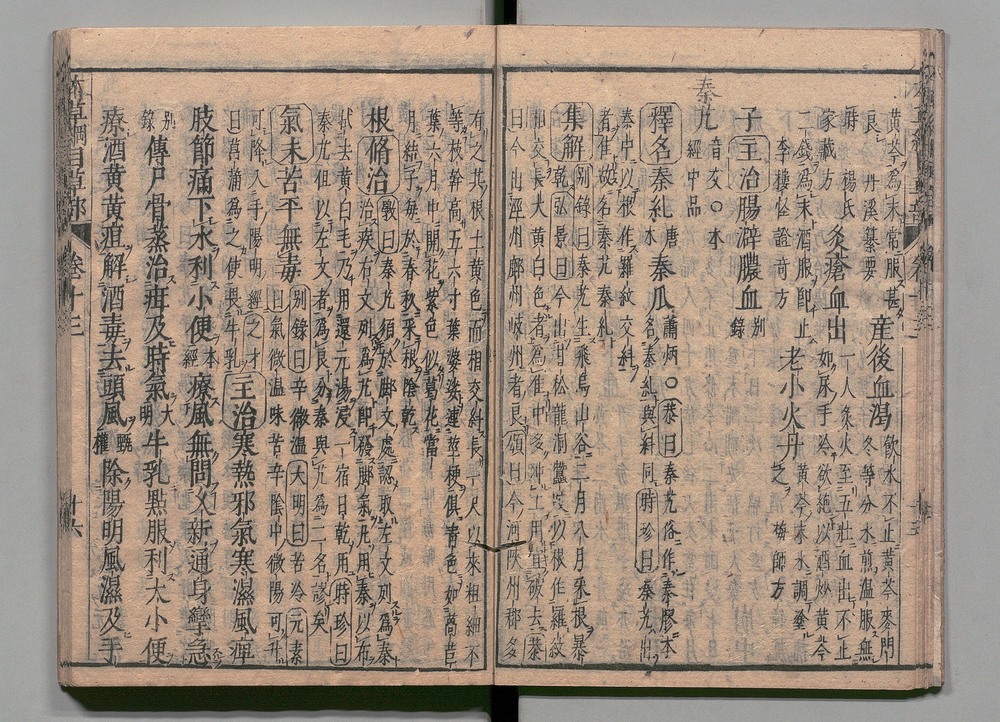 黄芩爲末常服甚 產後血渴 飲水不止黄芩麥門
良 丹溪纂要 冬等分水煎温服無
時 楊氏 灸瘡血出 一人灸火至五壯血出不止
家藏方 如尿手冷欲絶以酒炒黄芩
二錢爲末酒服卽止 老小火丹 黄芩末水調塗
李樓怪證奇方 之 梅師方
子 主治 腸澼膿血 别録
秦艽 音交〇本經中品
釋名 秦糺 唐本 秦瓜 蕭炳〇 恭曰 秦艽俗作秦膠本
名秦糺與糾同 時珍曰 秦艽出
秦中以根作羅紋交糾
者佳故名秦艽秦糺
集解 别録曰 秦艽生飛烏山谷二月八月采根暴
乾 弘景曰 今出甘松龍洞蠶陵以根作羅紋
相交長大黄白色者爲佳中多沙土用宜破去 恭
曰今出涇州鄜州岐州者良 頌曰今河陝州郡多
有之其根土黄色而相交糾長一尺以來粗細不
等枝幹高五六寸葉婆娑連莖梗俱青色如萵苣
葉六月中開花紫色似葛花當
月結子每於春秋采根陰乾
根 脩治 斆曰秦艽須於脚文處認取左文列爲秦
治疾右文列爲艽卽發脚氣凡用秦以布
拭去黄白毛乃用還元湯浸一宿日乾用 時珍曰
秦艽但以左文者爲良分秦與艽爲二名謬矣
氣味 苦平無毒 别録曰辛微温 大明曰苦冷 元素
曰氣微温味苦辛陰中微陽可升
可降入手陽明經 之才
曰菖蒲爲之使畏牛乳 主治 寒熱邪氣寒濕風痺
肢節痛下水利小便 本經 療風無問久新通身攣急
别録 傳尸骨蒸治疳及時氣 大明 牛乳點服利大小便
療酒黄黄疸解酒毒去頭風 甄權 除陽明風濕及手
本草綱目草部 卷十三 十六